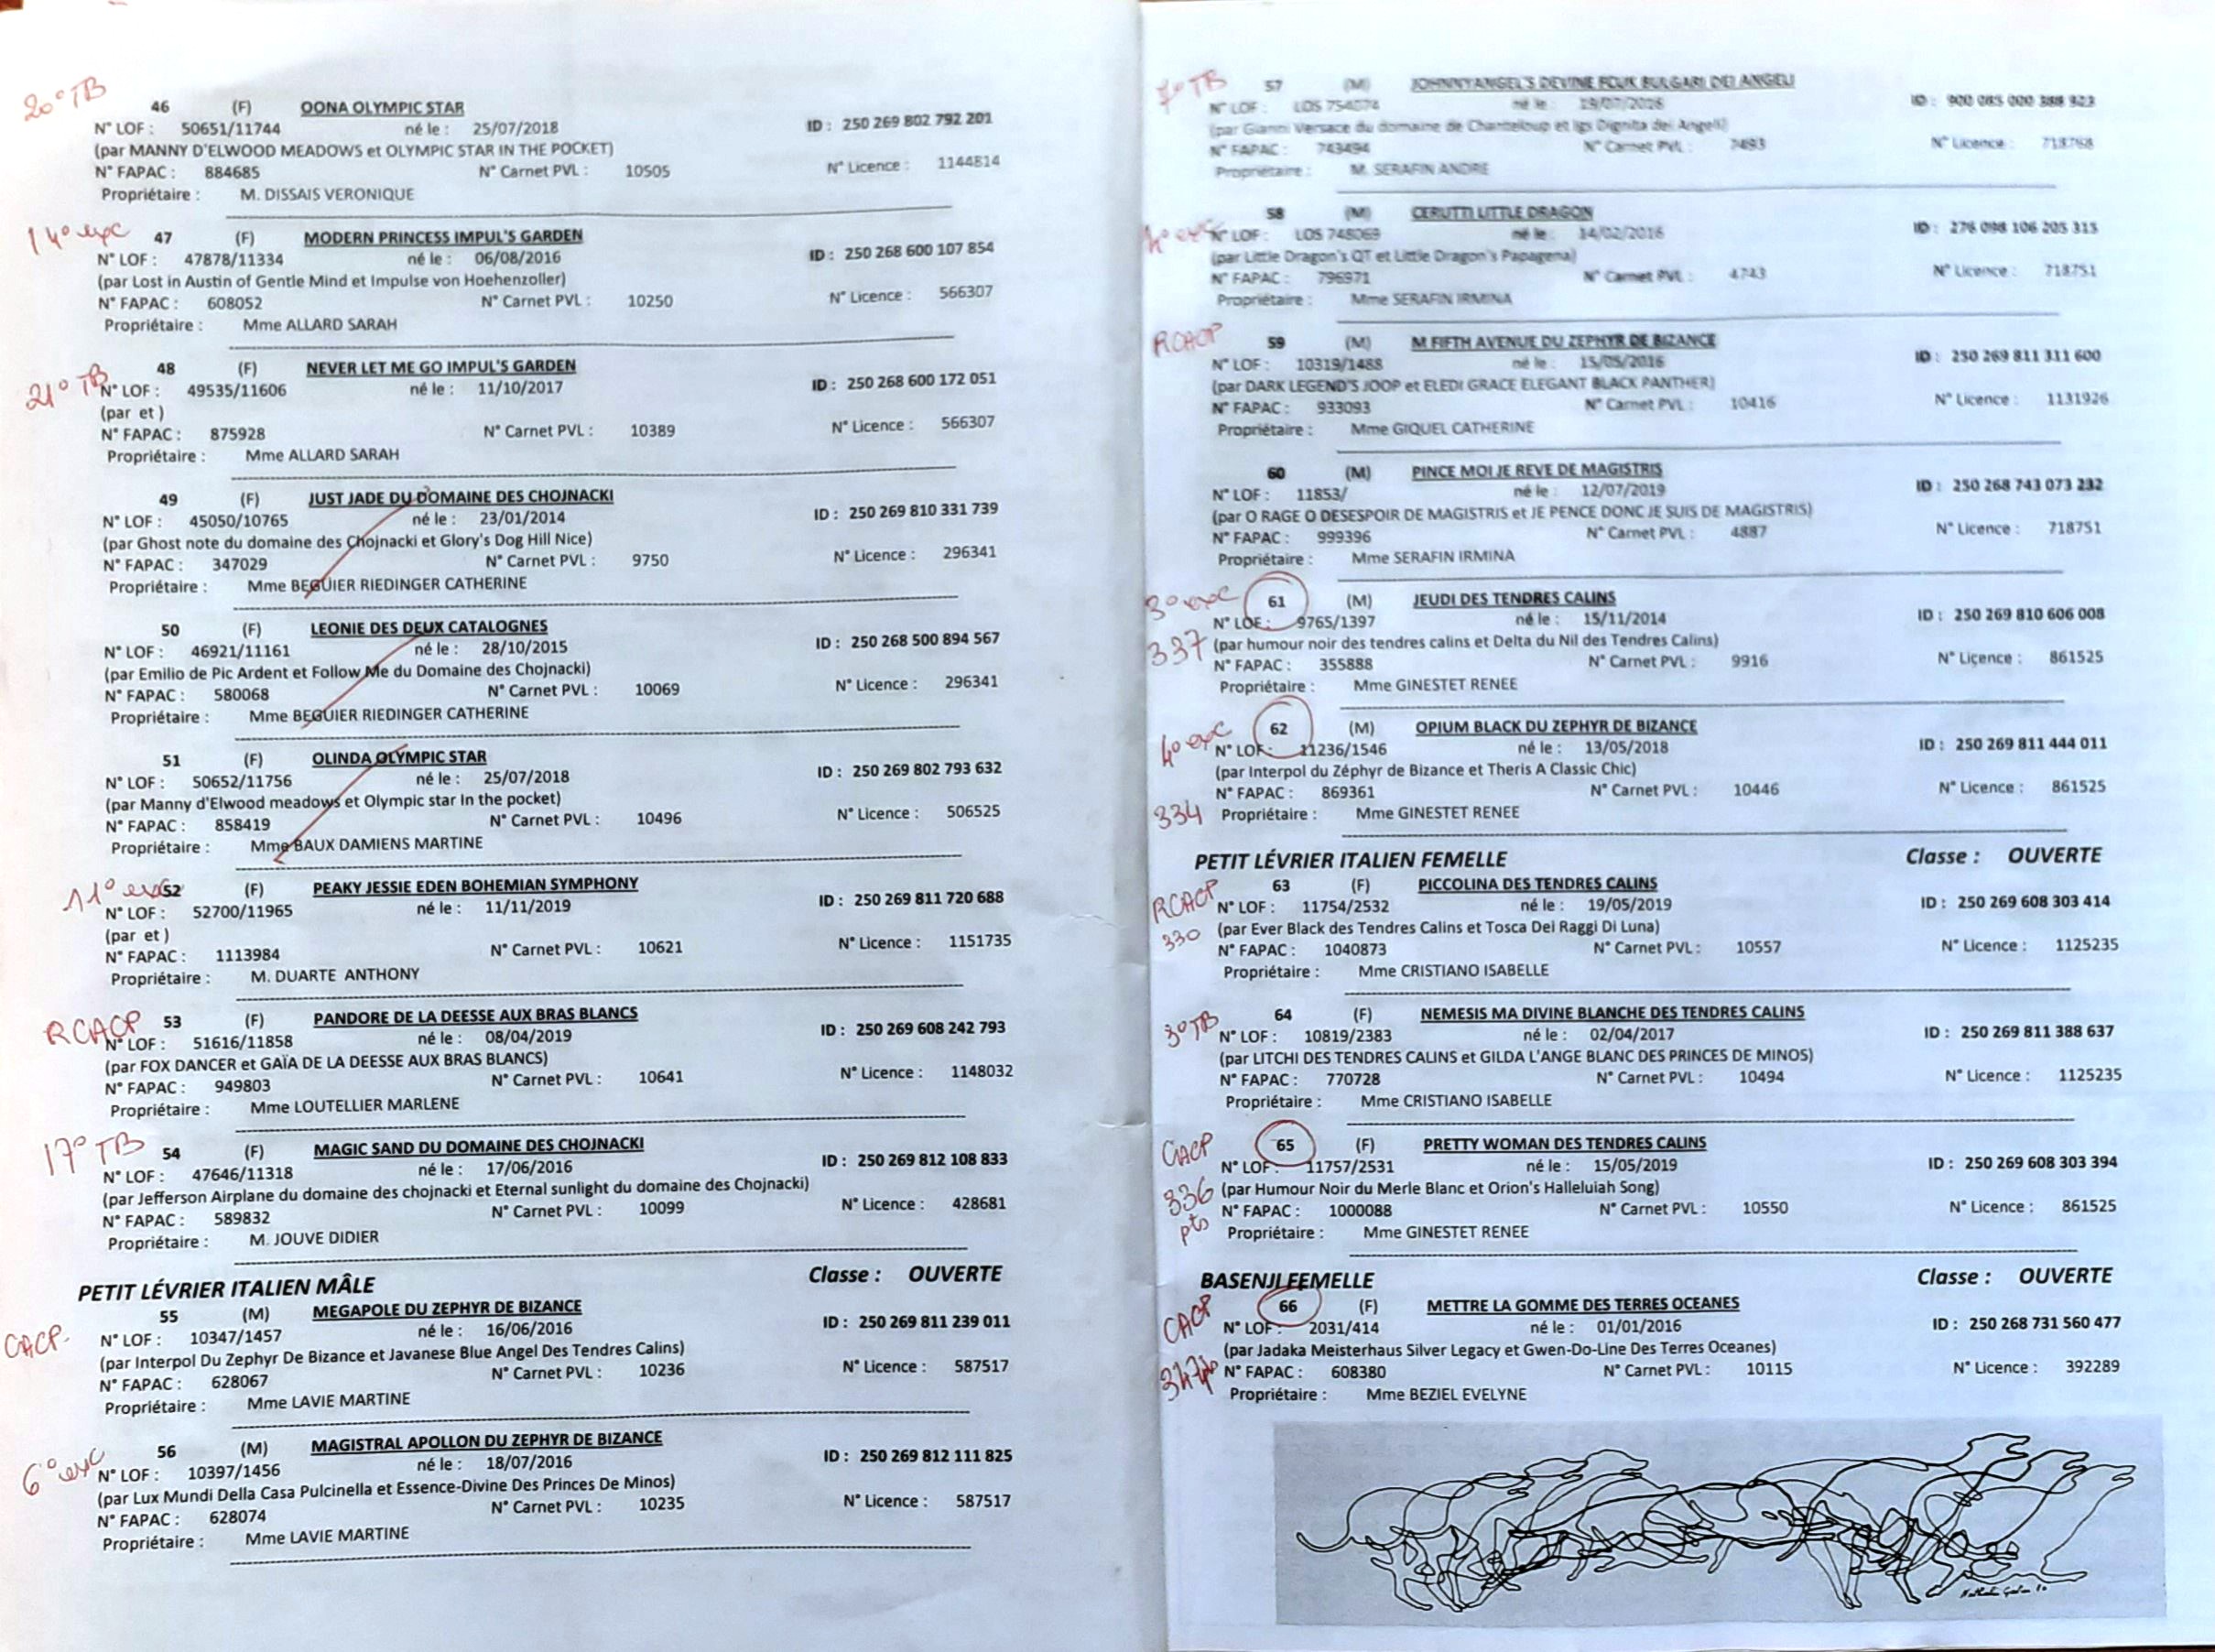 20° TB
46 (F) OONA OLYMPIC STAR
N° LOF : 50651/11744 né le : 25/07/2018 ID : 250 269 802 792 201
(par MANNY D'ELWOOD MEADOWS et OLYMPIC STAR IN THE POCKET)
N° FAPAC : 884685 N° Carnet PVL : 10505 N° Licence : 1144814
Propriétaire : M. DISSAIS VERONIQUE
14° exc
47 (F) MODERN PRINCESS IMPUL'S GARDEN
N° LOF : 47878/11334 né le : 06/08/2016 ID : 250 268 600 107 854
(par Lost in Austin of Gentle Mind et Impulse von Hoehenzoller)
N° FAPAC : 608052 N° Carnet PVL : 10250 N° Licence : 566307
Propriétaire : Mme ALLARD SARAH
48 (F) NEVER LET ME GO IMPUL'S GARDEN
21° TB N° LOF : 49535/11606 né le : 11/10/2017 ID : 250 268 600 172 051
(par et )
N° FAPAC : 875928 N° Carnet PVL : 10389 N° Licence : 566307
Propriétaire : Mme ALLARD SARAH
49 (F) JUST JADE DU DOMAINE DES CHOJNACKI
N° LOF : 45050/10765 né le : 23/01/2014 ID : 250 269 810 331 739
(par Ghost note du domaine des Chojnacki et Glory's Dog Hill Nice)
N° FAPAC : 347029 N° Carnet PVL : 9750 N° Licence : 296341
Propriétaire : Mme BEGUIER RIEDINGER CATHERINE
50 (F) LEONIE DES DEUX CATALOGNES
N° LOF : 46921/11161 né le : 28/10/2015 ID : 250 268 500 894 567
(par Emilio de Pic Ardent et Follow Me du Domaine des Chojnacki)
N° FAPAC : 580068 N° Carnet PVL : 10069 N° Licence : 296341
Propriétaire : Mme BEGUIER RIEDINGER CATHERINE
51 (F) OLINDA OLYMPIC STAR
N° LOF : 50652/11756 né le : 25/07/2018 ID : 250 269 802 793 632
(par Manny d'Elwood meadows et Olympic star In the pocket)
N° FAPAC : 858419 N° Carnet PVL : 10496 N° Licence : 506525
Propriétaire : Mme BAUX DAMIENS MARTINE
11° exc 52 (F) PEAKY JESSIE EDEN BOHEMIAN SYMPHONY
N° LOF : 52700/11965 né le : 11/11/2019 ID : 250 269 811 720 688
(par et )
N° FAPAC : 1113984 N° Carnet PVL : 10621 N° Licence : 1151735
Propriétaire : M. DUARTE ANTHONY
RCACP 53 (F) PANDORE DE LA DEESSE AUX BRAS BLANCS
N° LOF : 51616/11858 né le : 08/04/2019 ID : 250 269 608 242 793
(par FOX DANCER et GAÏA DE LA DEESSE AUX BRAS BLANCS)
N° FAPAC : 949803 N° Carnet PVL : 10641 N° Licence : 1148032
Propriétaire : Mme LOUTELLIER MARLENE
17° TB 54 (F) MAGIC SAND DU DOMAINE DES CHOJNACKI
N° LOF : 47646/11318 né le : 17/06/2016 ID : 250 269 812 108 833
(par Jefferson Airplane du domaine des chojnacki et Eternal sunlight du domaine des Chojnacki)
N° FAPAC : 589832 N° Carnet PVL : 10099 N° Licence : 428681
Propriétaire : M. JOUVE DIDIER
PETIT LÉVRIER ITALIEN MÂLE Classe : OUVERTE
55 (M) MEGAPOLE DU ZEPHYR DE BIZANCE
CACP N° LOF : 10347/1457 né le : 16/06/2016 ID : 250 269 811 239 011
(par Interpol Du Zephyr De Bizance et Javanese Blue Angel Des Tendres Calins)
N° FAPAC : 628067 N° Carnet PVL : 10236 N° Licence : 587517
Propriétaire : Mme LAVIE MARTINE
56 (M) MAGISTRAL APOLLON DU ZEPHYR DE BIZANCE
6° exc N° LOF : 10397/1456 né le : 18/07/2016 ID : 250 269 812 111 825
(par Lux Mundi Della Casa Pulcinella et Essence-Divine Des Princes De Minos)
N° FAPAC : 628074 N° Carnet PVL : 10235 N° Licence : 587517
Propriétaire : Mme LAVIE MARTINE
7° TB 57 (M) JOHNNYANGEL'S DEVINE FOUK BULGARI DEI ANGELI
N° LOF : LOS 754074 né le : 19/07/2016 ID : 900 085 000 388 923
(par Gianni Versace du domaine de Chanteloup et Igs Dignita dei Angeli)
N° FAPAC : 743494 N° Carnet PVL : 7493 N° Licence : 718768
Propriétaire : M. SERAFIN ANDRE
58 (M) CERUTTI LITTLE DRAGON
N° LOF : LOS 748069 né le : 14/02/2016 ID : 276 098 106 205 315
(par Little Dragon's QT et Little Dragon's Papagena)
N° FAPAC : 796971 N° Carnet PVL : 4743 N° Licence : 718751
Propriétaire : Mme SERAFIN IRMINA
RCACP 59 (M) M FIFTH AVENUE DU ZEPHYR DE BIZANCE
N° LOF : 10319/1488 né le : 15/05/2016 ID : 250 269 811 311 600
(par DARK LEGEND'S JOOP et ELEDI GRACE ELEGANT BLACK PANTHER)
N° FAPAC : 933093 N° Carnet PVL : 10416 N° Licence : 1131926
Propriétaire : Mme GIQUEL CATHERINE
60 (M) PINCE MOI JE REVE DE MAGISTRIS
N° LOF : 11853/ né le : 12/07/2019 ID : 250 268 743 073 232
(par O RAGE O DESESPOIR DE MAGISTRIS et JE PENCE DONC JE SUIS DE MAGISTRIS)
N° FAPAC : 999396 N° Carnet PVL : 4887 N° Licence : 718751
Propriétaire : Mme SERAFIN IRMINA
3° exc 61 (M) JEUDI DES TENDRES CALINS
N° LOF : 9765/1397 né le : 15/11/2014 ID : 250 269 810 606 008
337 (par humour noir des tendres calins et Delta du Nil des Tendres Calins)
N° FAPAC : 355888 N° Carnet PVL : 9916 N° Licence : 861525
Propriétaire : Mme GINESTET RENEE
4° exc 62 (M) OPIUM BLACK DU ZEPHYR DE BIZANCE
N° LOF : 11236/1546 né le : 13/05/2018 ID : 250 269 811 444 011
(par Interpol du Zéphyr de Bizance et Theris A Classic Chic)
N° FAPAC : 869361 N° Carnet PVL : 10446 N° Licence : 861525
334 Propriétaire : Mme GINESTET RENEE
PETIT LÉVRIER ITALIEN FEMELLE Classe : OUVERTE
63 (F) PICCOLINA DES TENDRES CALINS
RCACP N° LOF : 11754/2532 né le : 19/05/2019 ID : 250 269 608 303 414
330 (par Ever Black des Tendres Calins et Tosca Dei Raggi Di Luna)
N° FAPAC : 1040873 N° Carnet PVL : 10557 N° Licence : 1125235
Propriétaire : Mme CRISTIANO ISABELLE
64 (F) NEMESIS MA DIVINE BLANCHE DES TENDRES CALINS
3° TB N° LOF : 10819/2383 né le : 02/04/2017 ID : 250 269 811 388 637
(par LITCHI DES TENDRES CALINS et GILDA L'ANGE BLANC DES PRINCES DE MINOS)
N° FAPAC : 770728 N° Carnet PVL : 10494 N° Licence : 1125235
Propriétaire : Mme CRISTIANO ISABELLE
CACP 65 (F) PRETTY WOMAN DES TENDRES CALINS
N° LOF : 11757/2531 né le : 15/05/2019 ID : 250 269 608 303 394
336 pts (par Humour Noir du Merle Blanc et Orion's Halleluiah Song)
N° FAPAC : 1000088 N° Carnet PVL : 10550 N° Licence : 861525
Propriétaire : Mme GINESTET RENEE
BASENJI FEMELLE Classe : OUVERTE
CACP 66 (F) METTRE LA GOMME DES TERRES OCEANES
N° LOF : 2031/414 né le : 01/01/2016 ID : 250 268 731 560 477
(par Jadaka Meisterhaus Silver Legacy et Gwen-Do-Line Des Terres Oceanes)
N° FAPAC : 608380 N° Carnet PVL : 10115 N° Licence : 392289
Propriétaire : Mme BEZIEL EVELYNE